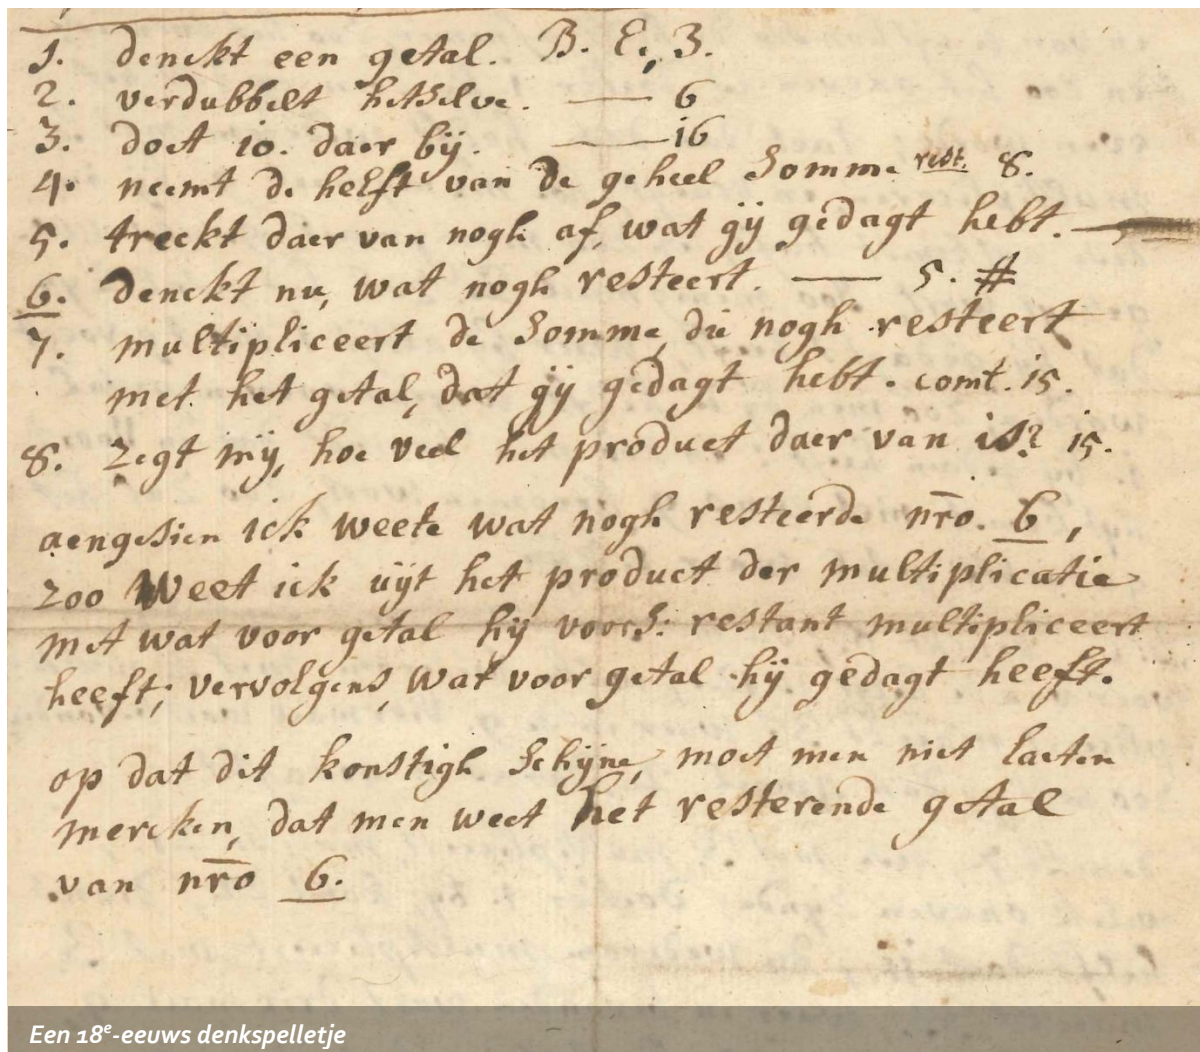 1. denckt een getal. B. E, 3.
2. verdubbelt hetselve. — 6
3. doet 10. daer bij. — 16
4. neemt de helft van de geheel Somme rest. 8.
5. treckt daer van nogh af, wat gÿ gedagt hebt. —
6. denckt nu, wat nogh resteert. — 5. #
7. multipliceert de Somme, die nogh resteert
met het getal, dat gÿ gedagt hebt. comt. 15.
8. Zegt mÿ, hoe veel het product daer van is? 15.
aengesien ick weete wat nogh resteerde nr̄o. 6,
zoo Weet ick uÿt het product der multiplicatie
met wat voor getal hÿ voors: restant multipliceert
heeft; vervolgens, wat voor getal hÿ gedagt heeft.
op dat dit konstigh Schÿne, moet men niet laeten
mercken, dat men weet het resterende getal
van nr̄o 6.
Een 18e-eeuws denkspelletje